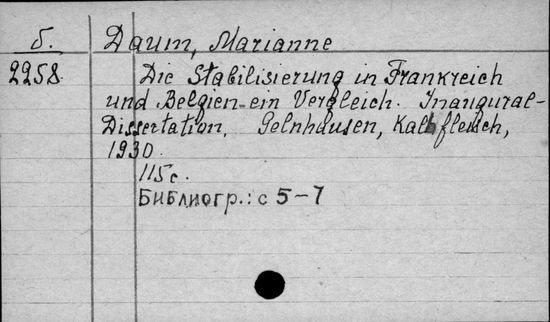 б. Daum, Marianne
2258. Die Stabilisierung in Frankreich
und Belgien-ein Vergleich. Inaugural-
Dissertation. Gelnhausen, Kalbfleisch,
1930.
115с.
Библиогр.: с 5-7